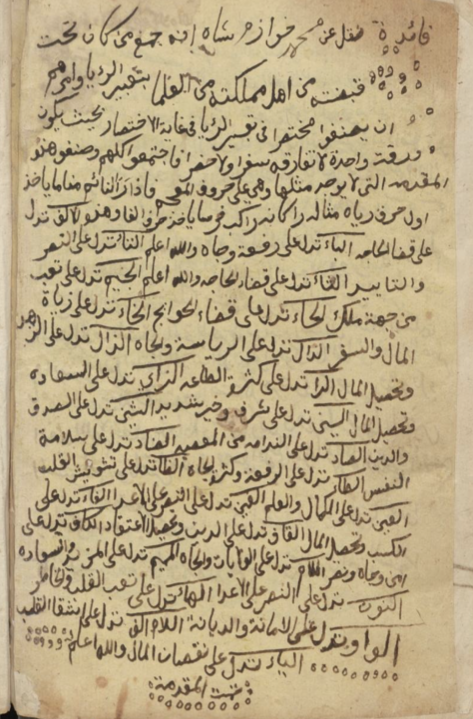 فائدة نقل عن محمد خوارزم شاه انه جمع من كان تحت
قبضته من اهل مملكته من العلما بتعبير الرؤيا وامرهم
ان يصنفوا مختصرا في تفسير الرؤيا في غاية الاختصار بحيث يكون
ورقة واحدة لا تفارقه سفرا ولا حضرا فاجتمعوا كلهم وصنفوا هذه
المقدمه التي لا يوجد مثلها وهي على حروف المعجم فاذا راى النائم مناما ياخذ
اول حرف رياه مثاله راكانه راكب فرسا ياخذ حرف الفا وهذه الالف تدل
على قضا الحاجه الباء تدل على رفعة وجاه والله اعلم التاء تدل على النصر
والتاييد الثاء تدل على قضاء الحاجه والله اعلم الجيم تدل على تعب
من جهة ملك الحاء تدل على قضاء الحوايج الخاء تدل على زيادة
المال والسفر الدال تدل على الرياسة والجاه الذال تدل على
وتحصيل المال الرا تدل على كثرة الطاعه الزاي تدل على السعاده
وتحصيل المال السين تدل على شرف وخير شديد الشين تدل على الصدق
والدين الصاد تدل على الندامه من المعصيه الضاد تدل على سلامة
النفس الطاء تدل على الرفعة وكثرة الجاه الظا تدل على تشويش القلب
العين تدل على الكمال والعلم الغين تدل على النصر على الاعدا الفاء تدل على
الكسب وتحصيل المال القاف تدل على الدين وتحصيل الاعتقاد الكاف تدل على
امن وجاه ونصر اللام تدل على الولايات والجاه الميم تدل على العز والسعاده
النون تدل على النصر على الاعدا الهاء تدل على تعب القلب والخاطر
الواو تدل على الامانة والديانة اللام الف تدل على القلب
الياء تدل على نقصان المال والله اعلم
تمت المقدمة